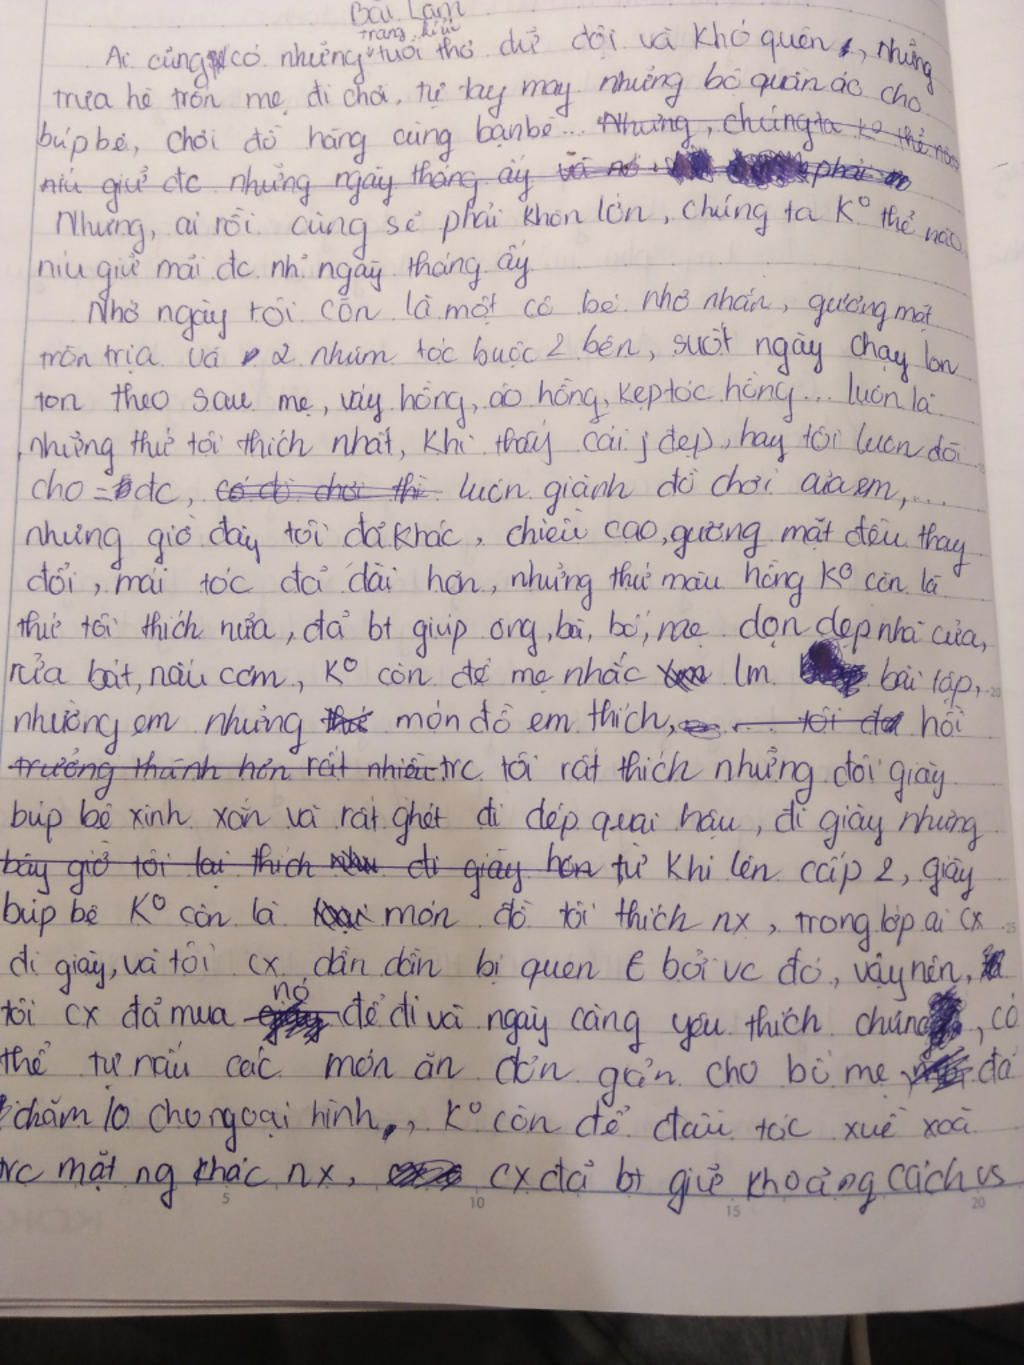 Bài Làm
trang hiu
Ai cũng có những tuổi thơ dữ dội và khó quên, những
trưa hè trốn mẹ đi chơi, tự tay may những bộ quần áo cho
búp bê, chơi đồ hàng cùng bạn bè... Nhưng, chúng ta k° thể nào
níu giữ đc những ngày tháng ấy và nó phải
Nhưng, ai rồi cũng sẽ phải khôn lớn, chúng ta k° thể nào
níu giữ mãi đc nh~ ngày tháng ấy
Nhớ ngày tôi còn là một cô bé nhỏ nhắn, gương mặt
tròn trịa và 2 nhúm tóc buộc 2 bên, suốt ngày chạy lon
ton theo sau mẹ, váy hồng, áo hồng, kẹp tóc hồng... luôn là
những thứ tôi thích nhất, khi thấy cái j đẹp, hay tôi luôn đòi
cho = đc, có đồ chơi thì luôn giành đồ chơi của em,...
nhưng giờ đây tôi đã khác, chiều cao, gương mặt đều thay
đổi, mái tóc đã dài hơn, những thứ màu hồng k° còn là
thứ tôi thích nữa, đã bt giúp ông, bà, bố, mẹ dọn dẹp nhà cửa,
rửa bát, nấu cơm, k° còn để mẹ nhắc lm bài tập,
nhường em những thứ món đồ em thích, ... tôi đã hồi
trưởng thành hơn rất nhiều trc tôi rất thích những đôi giày
búp bê xinh xắn và rất ghét đi dép quai hậu, đi giày nhưng
bây giờ tôi lại thích như đi giày hơn từ khi lên cấp 2, giày
búp bê k° còn là loại món đồ tôi thích nx, trong lớp ai cx
đi giày, và tôi cx dần dần bị quen bởi vc đó, vậy nên,
nó
tôi cx đã mua giày để đi và ngày càng yêu thích chúng, có
thể tự nấu các món ăn đơn giản cho bố mẹ đã
chăm lo cho ngoại hình, k° còn để đầu tóc xuề xoà
trc mặt ng khác nx, cx đã bt giữ khoảng cách vs
5 10 15 20
20
25